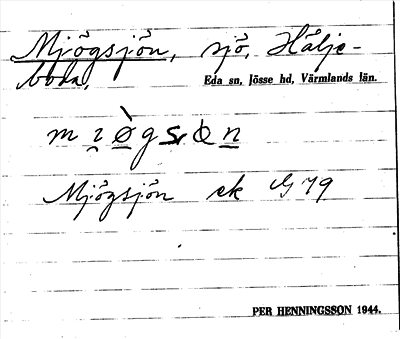 Mjögsjön, sjö, Hälje-
boda,
Eda sn, Jösse hd, Värmlands län.
Mjögsjön ek G 79
PER HENNINGSSON 1944.